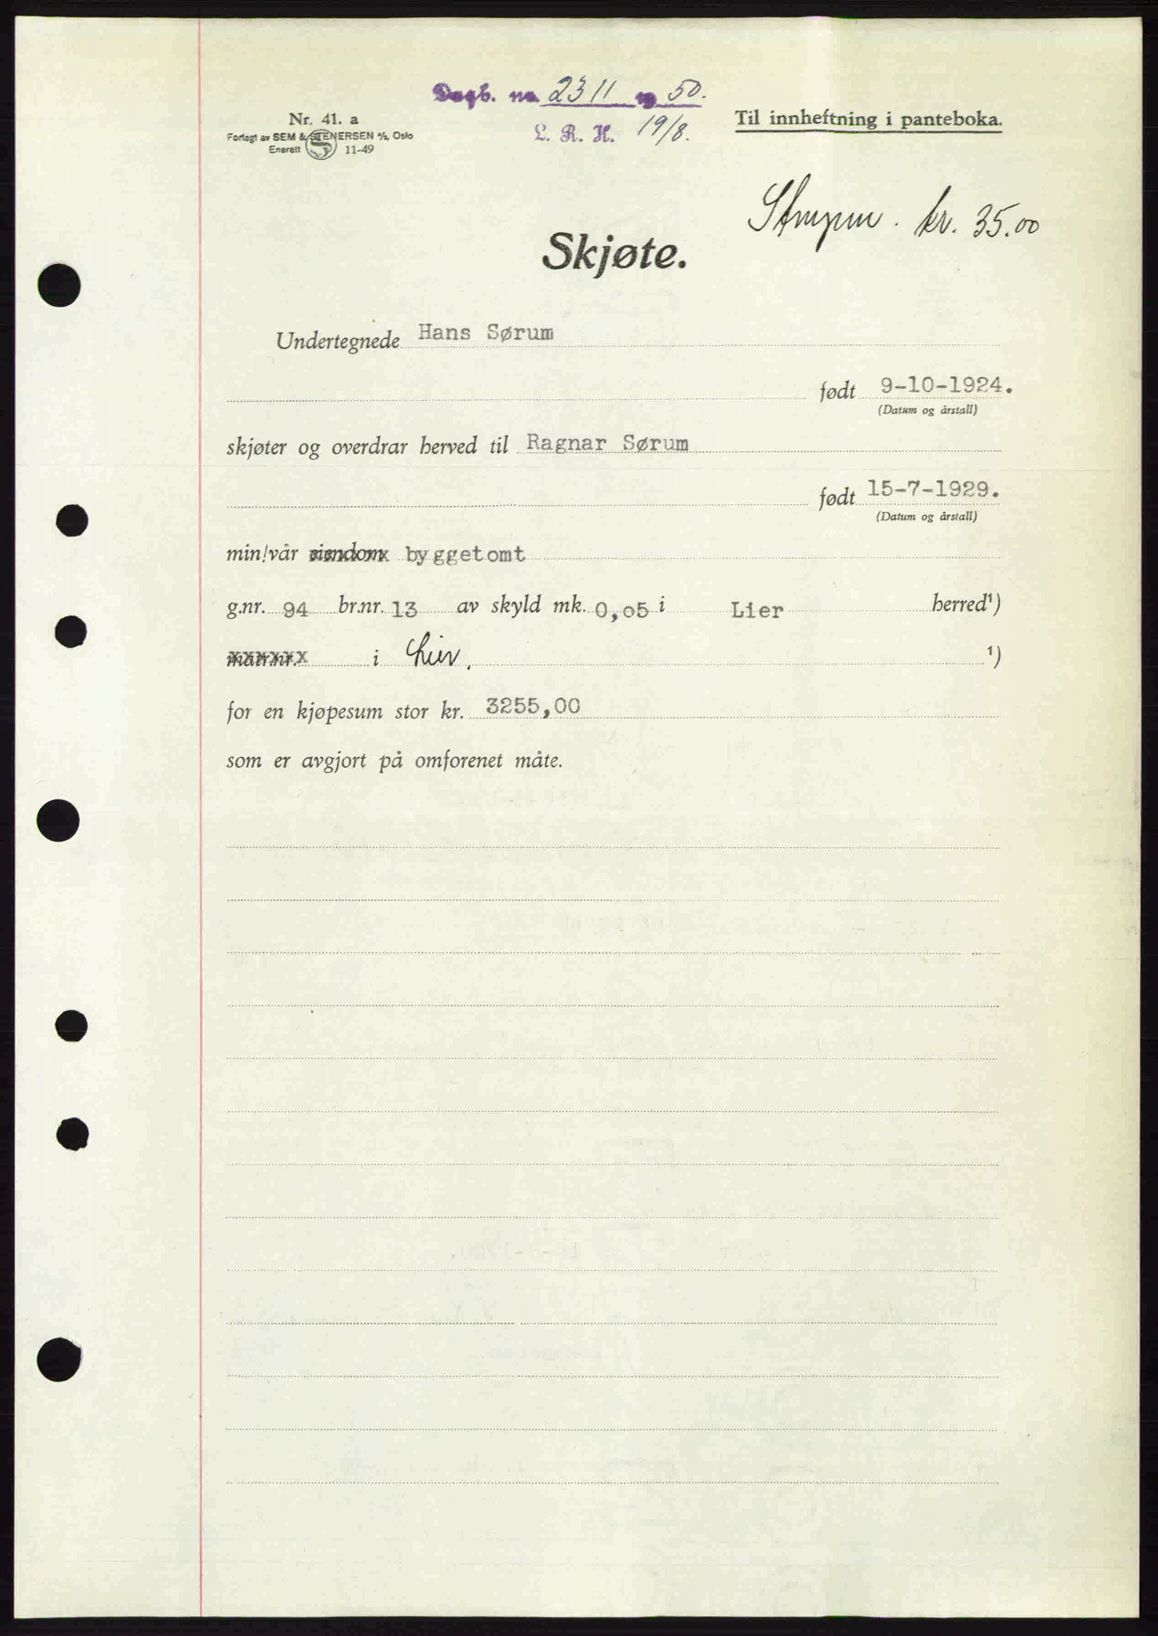 Dagb. nr. 2311 19 50.
L. R. H. 19/8.
Nr. 41. a
Forlagt av SEM & STENERSEN A/S, Oslo
Enerett 11-49
Til innheftning i panteboka.
kr. 35.00
Skjøte.
Undertegnede Hans Sørum
født 9-10-1924.
(Datum og årstall)
skjøter og overdrar herved til Ragnar Sørum
født 15-7-1929.
(Datum og årstall)
min/vår eiendom byggetomt
g.nr. 94 br.nr. 13 av skyld mk. 0,05 i Lier herred¹)
matr.nr. i Lier. ¹)
for en kjøpesum stor kr. 3255,00
som er avgjort på omforenet måte.